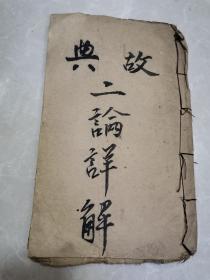 故典
二論詳解